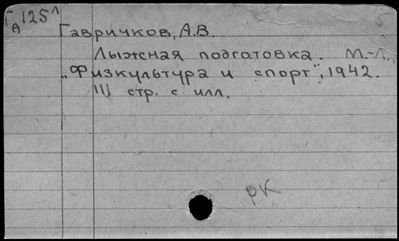 Г125л
А
Гавричков, А.В.
Лыжная подготовка. М.-Л.,
„Физкультура и спорт", 1942.
111 стр. с илл.
рк